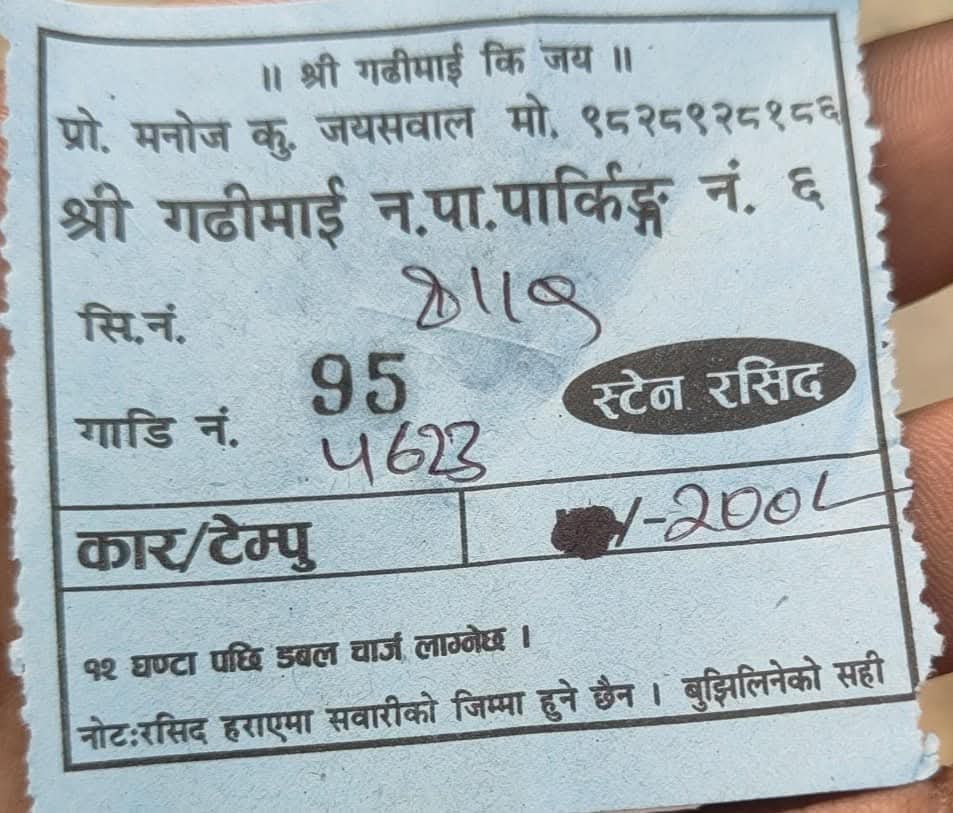 ॥ श्री गढीमाई कि जय ॥
प्रो. मनोज कु. जयसवाल मो. ९८२८९२८१८६
श्री गढीमाई न.पा.पार्किङ्ग नं. ६
सि.नं.
95
स्टेन रसिद
गाडि नं.
4623
कार/टेम्पु
-200
१२ घण्टा पछि डबल चार्ज लाग्नेछ ।
नोट:रसिद हराएमा सवारीको जिम्मा हुने छैन । बुझिलिनेको सही